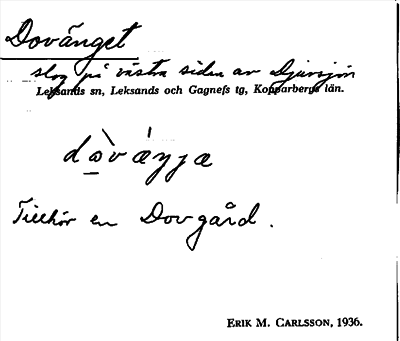 Dovänget
slog på västra siden av Djursjön
Leksands sn, Leksands och Gagnefs tg, Kopparbergs län.
dòvǽŋjæ
Tillhör en Dovgård.
ERIK M. CARLSSON, 1936.